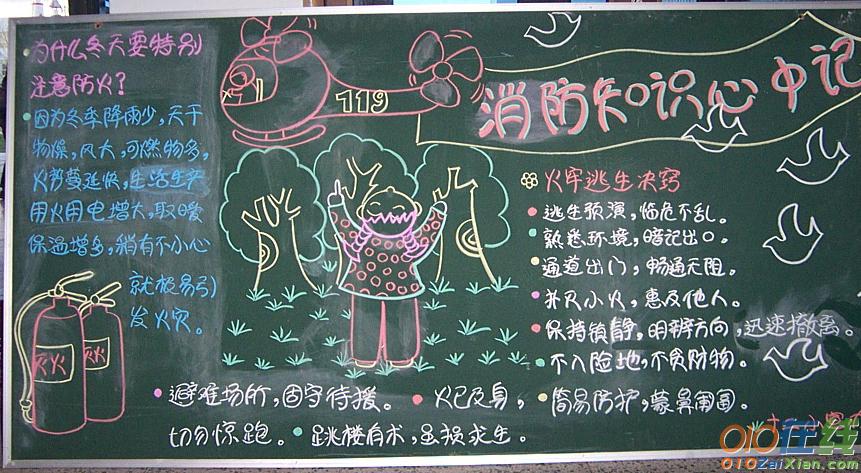 为什么冬天要特别
注意防火？
因为冬季降雨少，天干
物燥，风大，可燃物多，
火势蔓延快，生活生产
用火用电增大，取暖
保温增多，稍有不小心
就极易引
发火灾。
灭火
灭火
119
消防知识心中记
火牢逃生决窍
逃生预演，临危不乱。
熟悉环境，暗记出口。
通道出门，畅通无阻。
扑灭小火，惠及他人。
保持镇静，明辨方向，迅速撤离。
不入险地，不贪财物。
避难场所，固守待援。火已及身，
简易防护，蒙鼻匍匐。
切勿惊跑。跳楼有术，虽损求生。
010在线
010ZaiXian.com